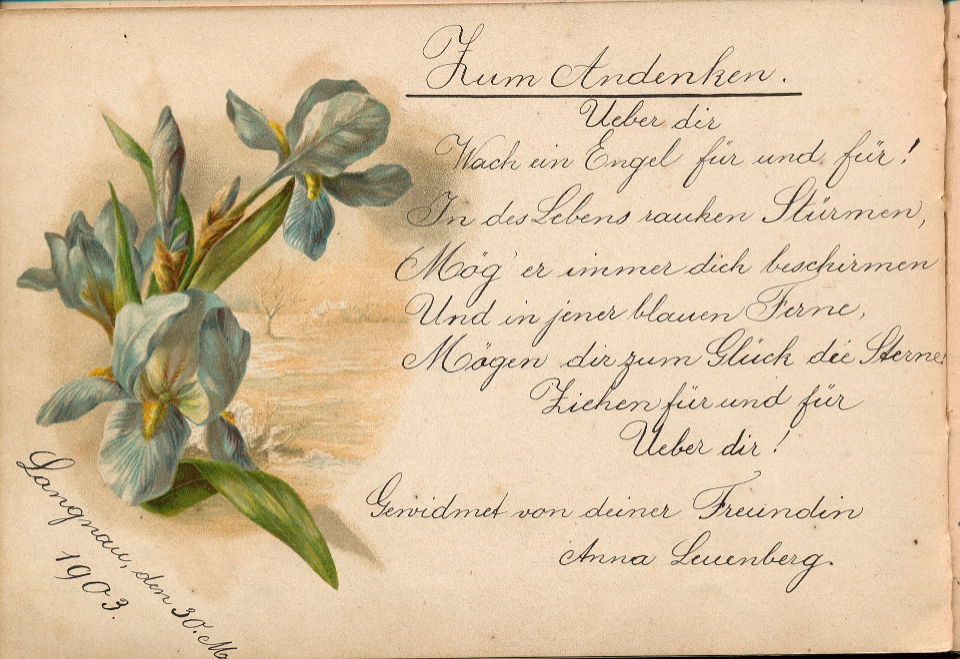 Zum Andenken.
Ueber dir
Wach ein Engel für und für!
In des Lebens rauhen Stürmen,
Mög' er immer dich beschirmen
Und in jener blauen Ferne,
Mögen dir zum Glück die Sterne
Ziehen für und für
Ueber dir!
Gewidmet von deiner Freundin
Anna Leuenberg.
Langnau, den 30.
1903.